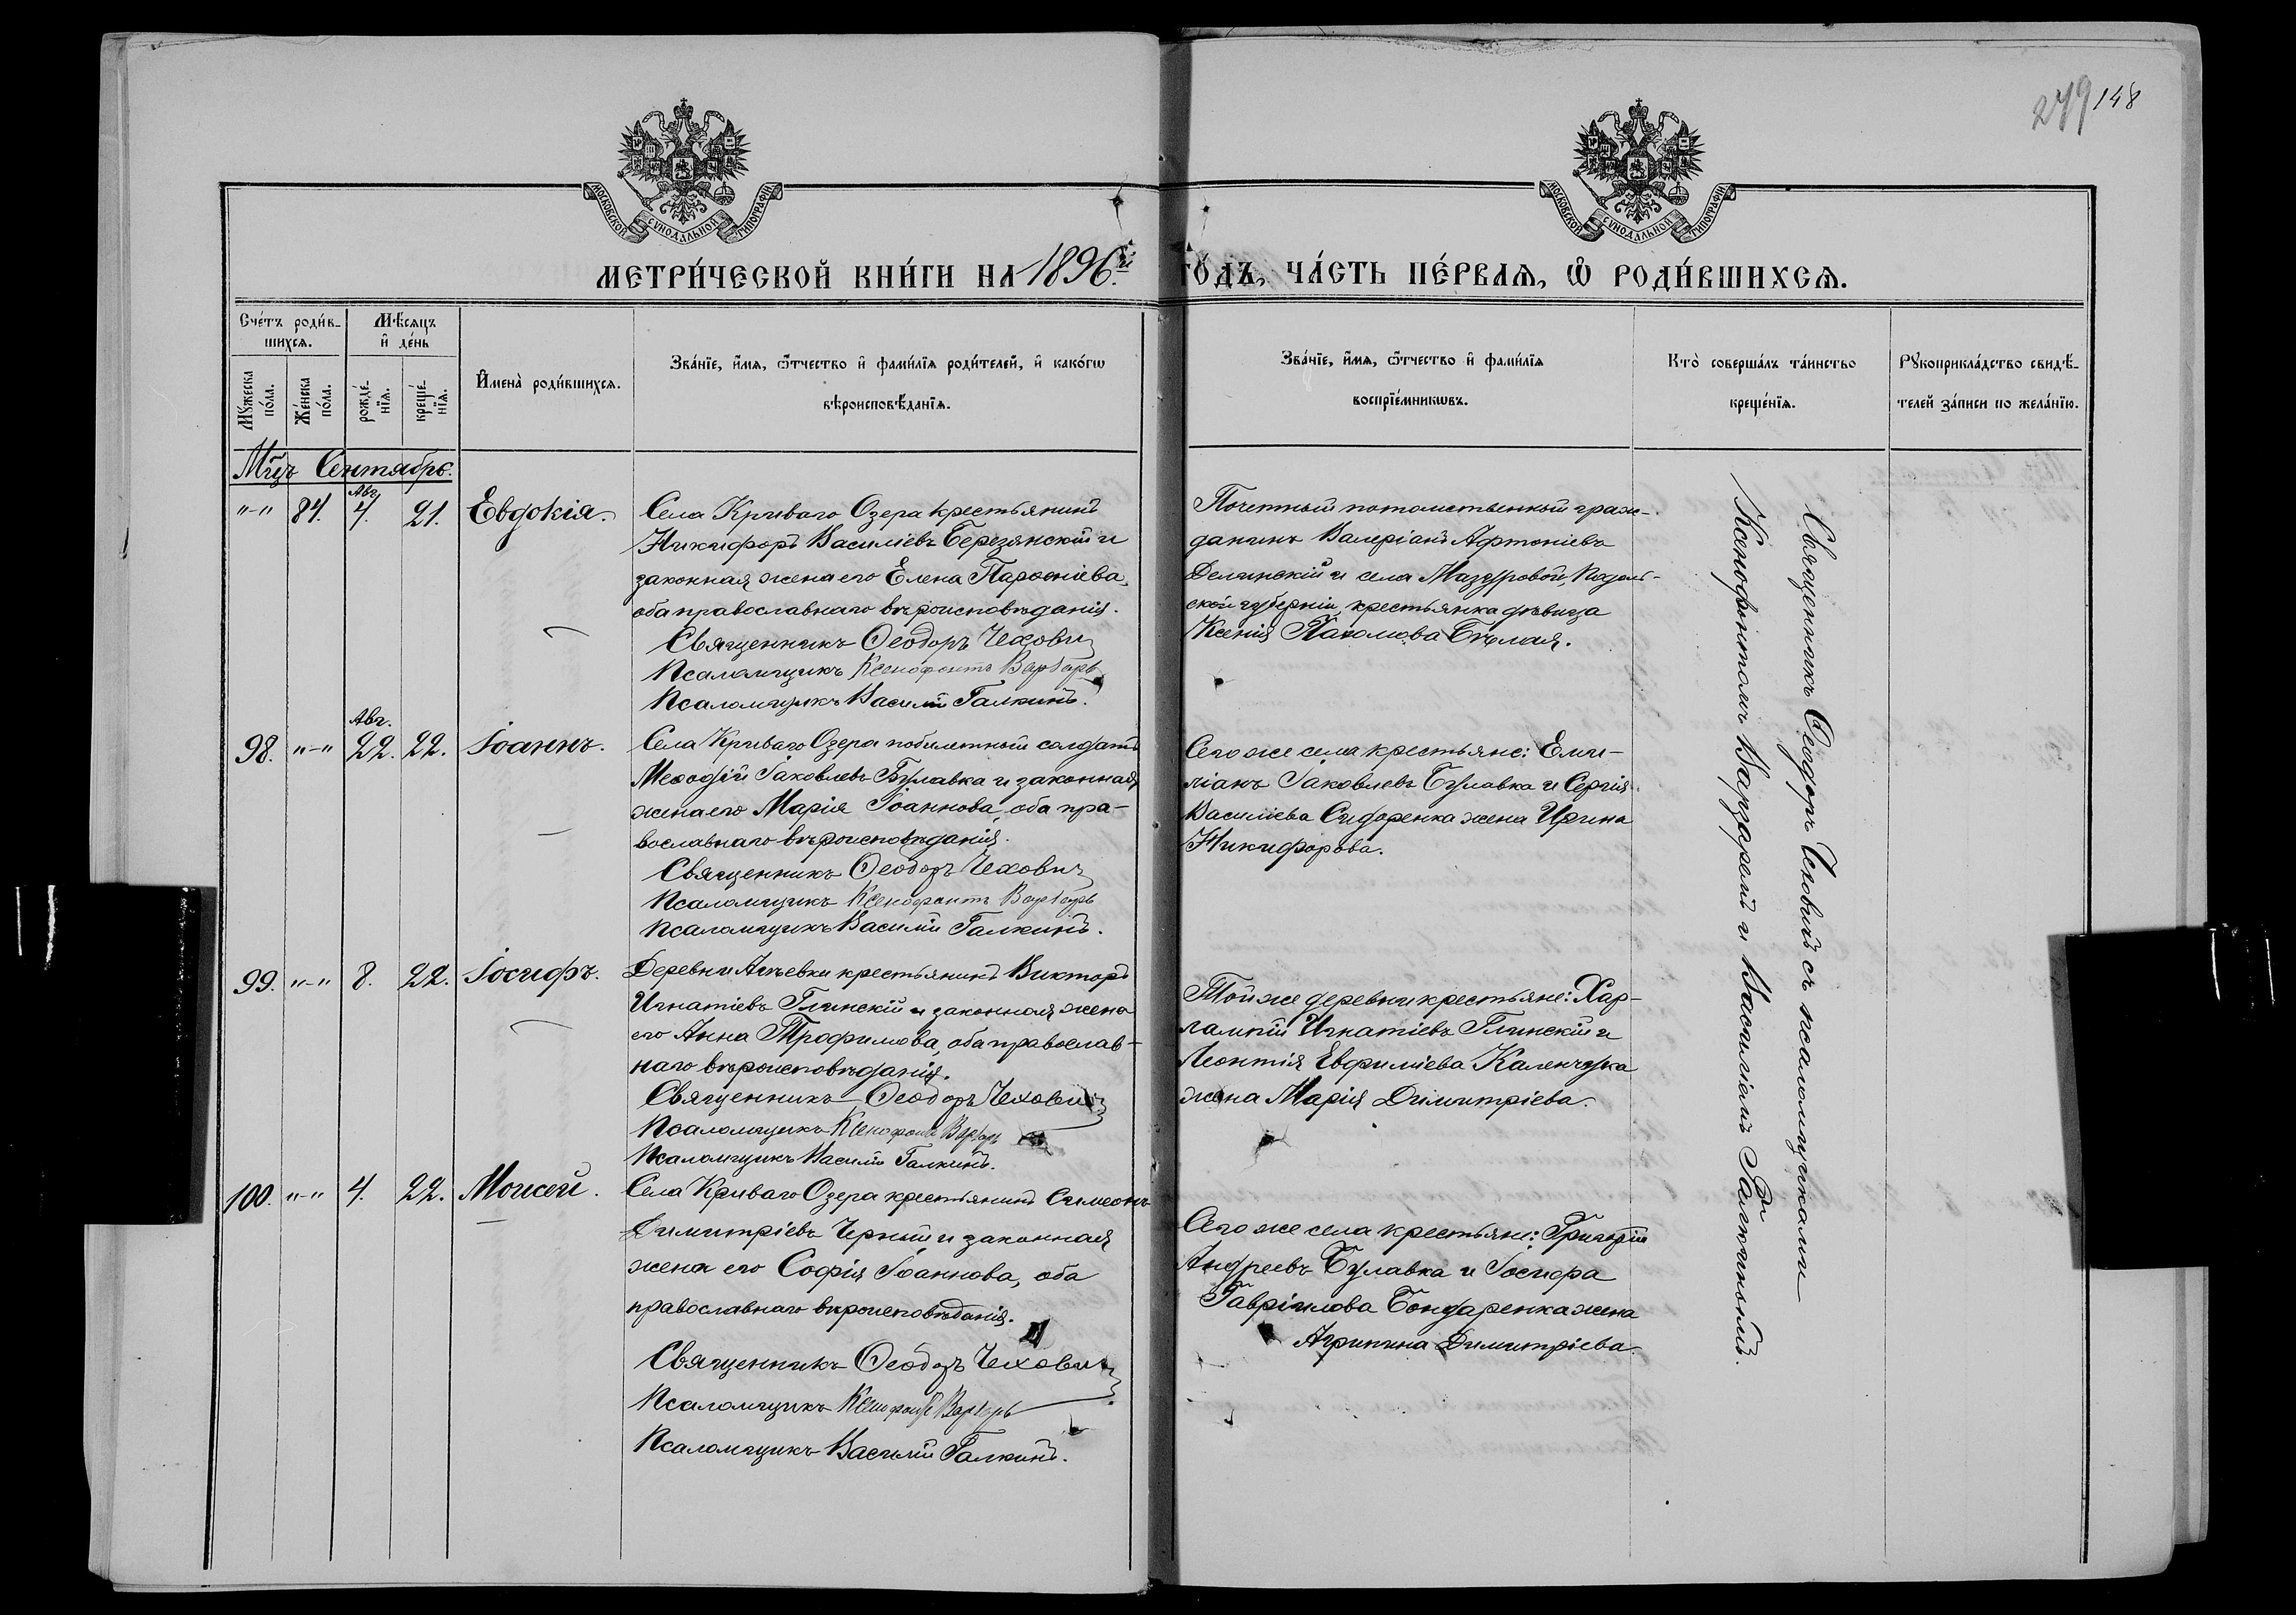 279 148
МОСКОВСКОЙ СѴНОДАЛЬНОЙ ТИПОГРАФІИ
МОСКОВСКОЙ СѴНОДАЛЬНОЙ ТИПОГРАФІИ
МЕТРИ́ЧЕСКОЙ КНИ́ГИ НА 1896.й ГО́ДЪ, ЧА́СТЬ ПЕ́РВАѦ, Ѽ РОДИ́ВШИХСѦ.
Сче́тъ роди́в-
шихсѧ.
Мѣ́сѧцъ
и҆ де́нь
Мꙋ́жеска
по́ла.
Же́нска
по́ла.
рожде́-
нїѧ.
креще́-
нїѧ.
И҆мена̀ роди́вшихсѧ.
Зва́нїе, и҆́мѧ, ѻ҆́тчество и҆ фами́лїѧ роди́телей, и҆ како́гѡ
вѣроисповѣ́данїѧ.
Зва́нїе, и҆́мѧ, ѻ҆́тчество и҆ фами́лїѧ
воспрїе́мникѡвъ.
Кто̀ соверша́лъ та́инство
креще́нїѧ.
Рꙋкоприкла́дство свидѣ́-
телей за́писи по жела́нїю.
Мцъ Сентябрь.
"-" 84. Авг. 4. 21. Евдокія.
Села Криваго Озера крестьянинъ
Никифоръ Василіевъ Березянскій и
законная жена его Елена Парѳеніева,
оба православнаго вѣроисповѣданія.
Священникъ Ѳеодоръ Чеховичъ
Псаломщикъ Ксенофонтъ Варзарь
Псаломщикъ Василій Галкинъ.
Почетный потомственный граж-
данинъ Валеріанъ Афтоніевъ
Делинскій и села Мазуровой, Подоль-
ской губерніи, крестьянка дѣвица
Ксенія Пахомова Бѣлая.
98. "-" Авг. 22. 22. Іоаннъ.
Села Криваго Озера побилетный солдатъ
Меѳодій Іаковлевъ Булавка и законная
жена его Марія Іоаннова, оба пра-
вославнаго вѣроисповѣданія.
Священникъ Ѳеодоръ Чеховичъ
Псаломщикъ Ксенофонтъ Варзарь
Псаломщикъ Василій Галкинъ.
Сего же села крестьяне: Еми-
ліанъ Іаковлевъ Булавка и Сергія
Василіева Сидоренка жена Ирина
Никифорова.
99. "-" 8. 22. Іосифъ.
Деревни крестьянинъ Викторъ
Игнатіевъ Глинскій и законная жена
его Анна Трофимова, оба православ-
наго вѣроисповѣданія.
Священникъ Ѳеодоръ Чеховичъ
Псаломщикъ Ксенофонтъ Варзарь
Псаломщикъ Василій Галкинъ.
Той же деревни крестьяне: Хар-
лампій Игнатіевъ Глинскій и
Леонтія Евфиміева Каленчука
жена Марія Димитріева.
100. "-" 4. 22. Моисей.
Села Криваго Озера крестьянинъ Симеонъ
Димитріевъ Черный и законная
жена его Софія Іоаннова, оба
православнаго вѣроисповѣданія.
Священникъ Ѳеодоръ Чеховичъ
Псаломщикъ Ксенофонтъ Варзарь
Псаломщикъ Василій Галкинъ.
Сего же села крестьяне: Григорій
Андреевъ Булавка и Іосифа
Гавріилова Бондаренка жена
Агрипина Димитріева.
Священникъ Ѳеодоръ Чеховичъ съ псаломщиками
Ксенофонтомъ Варзаремъ и Василіемъ Галкинымъ.